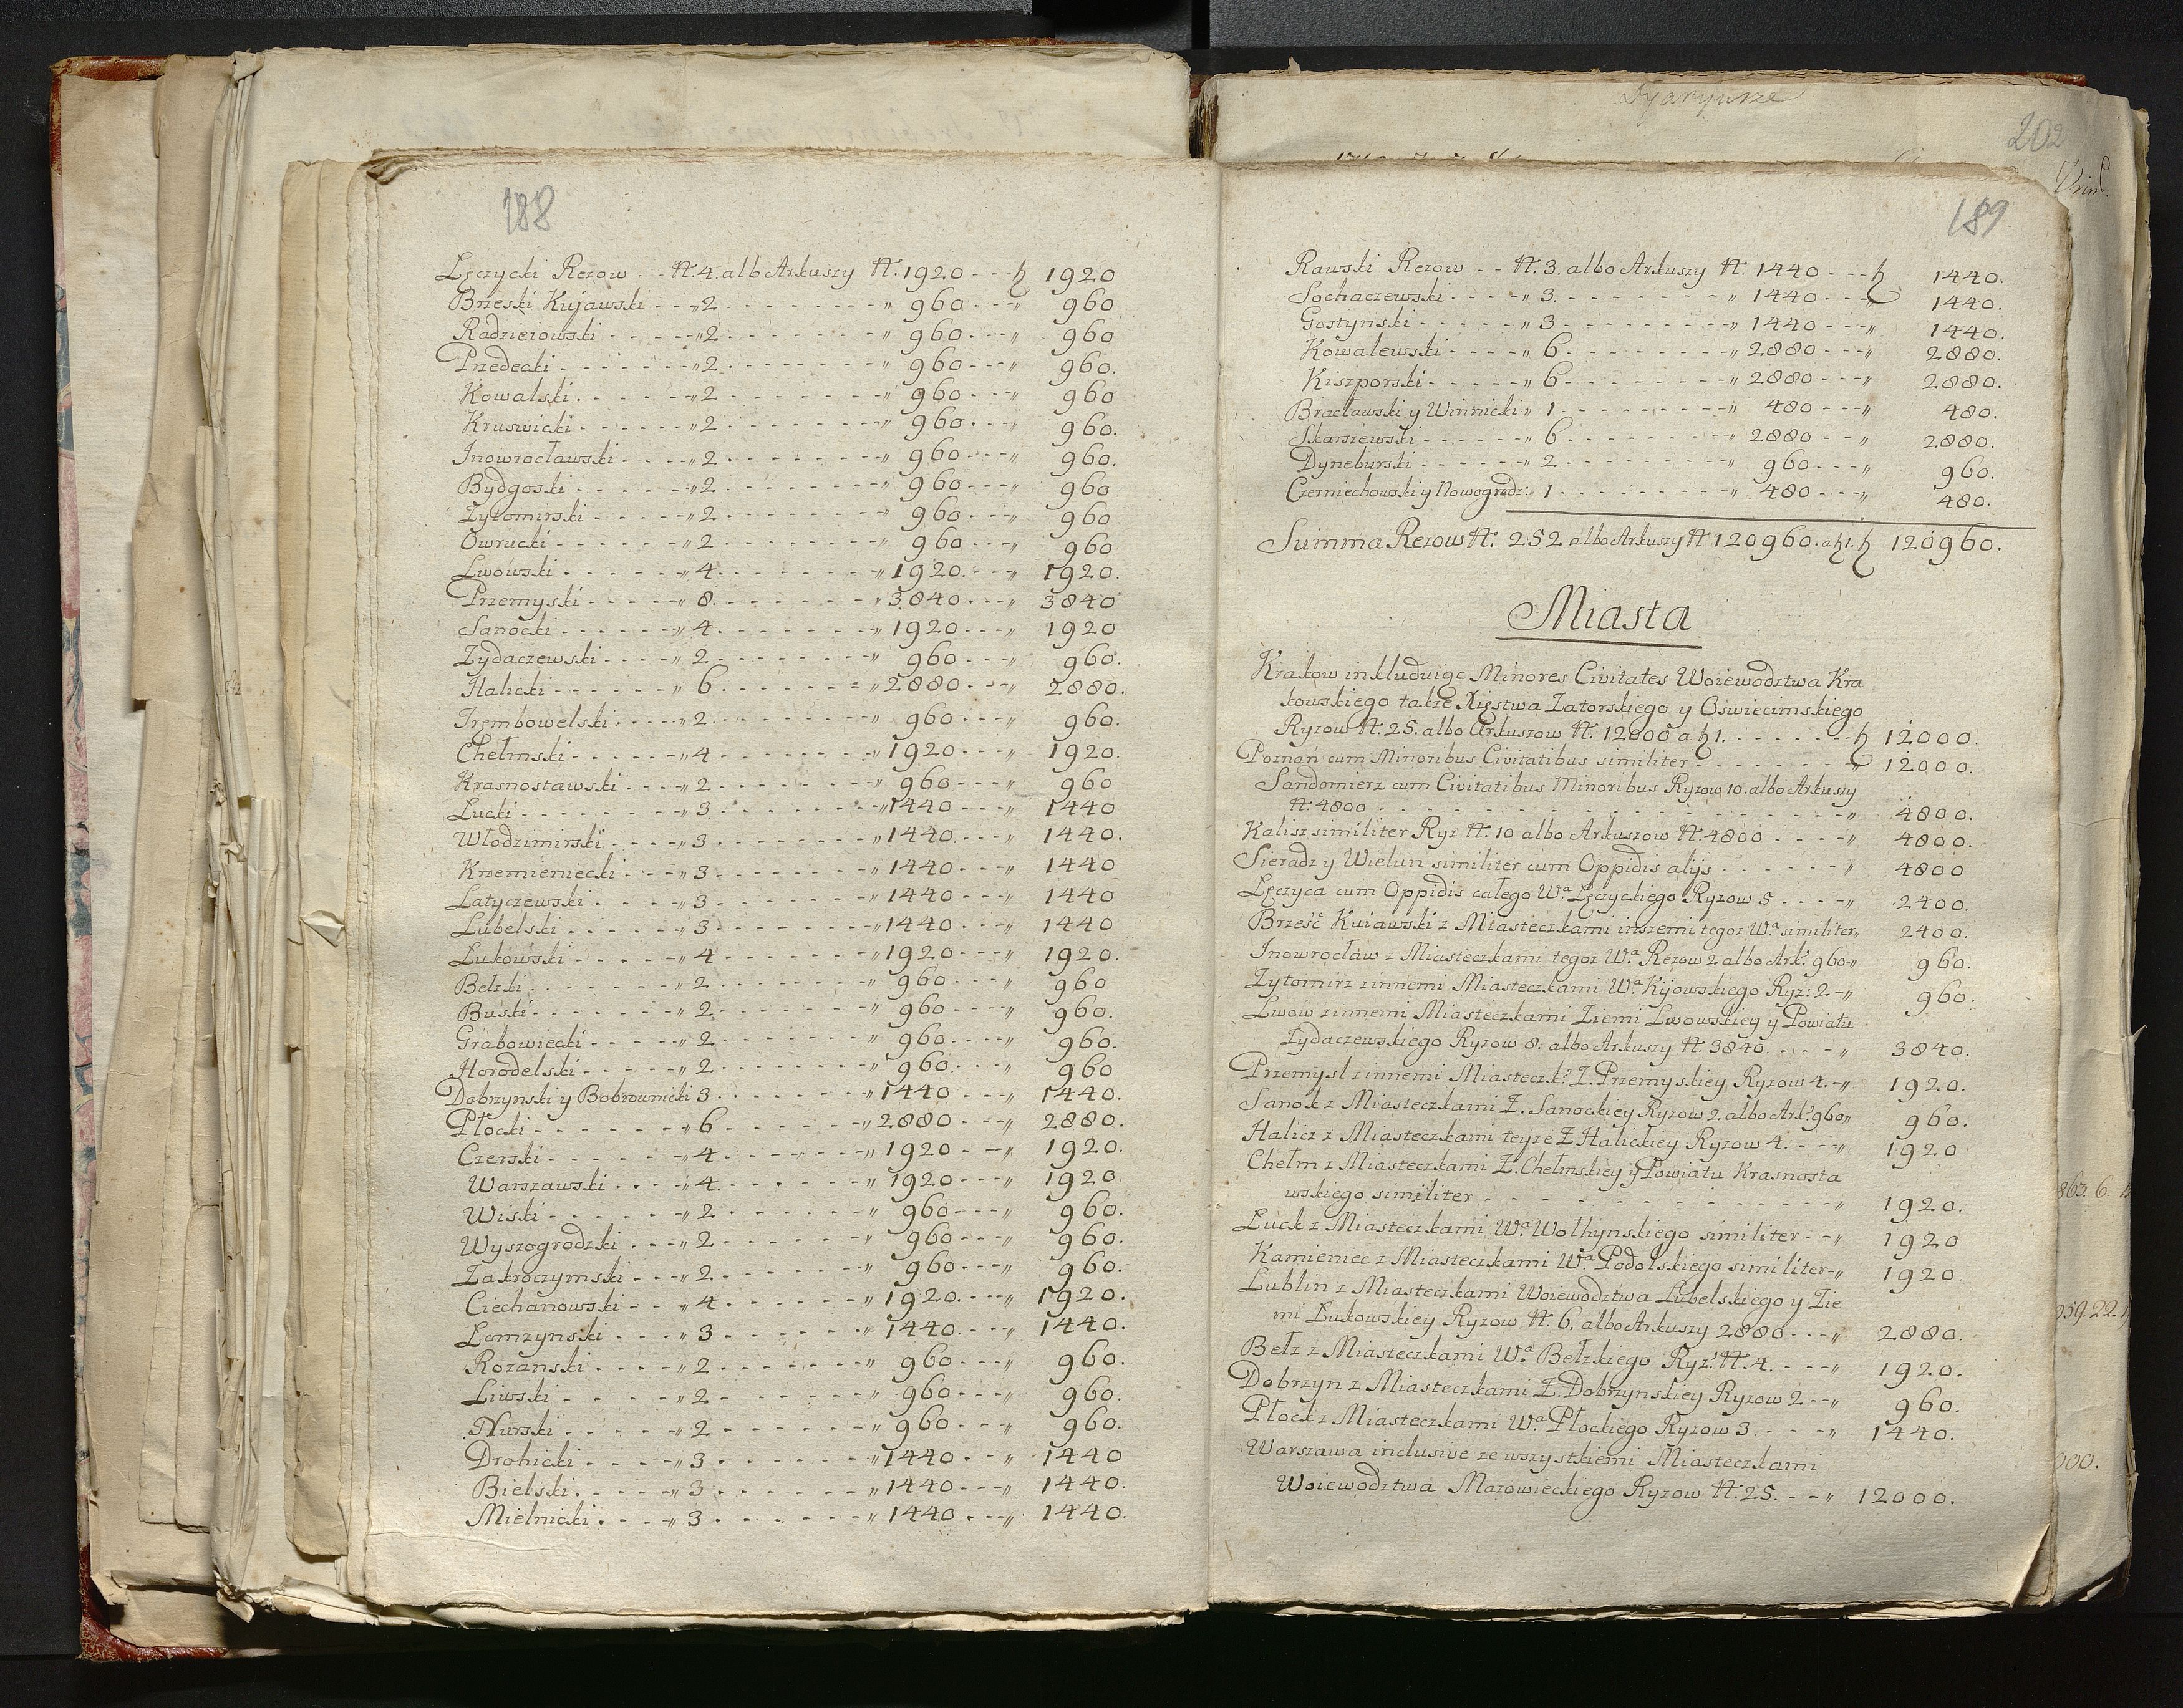 188
Łęczycki Rezow - - #. 4. albo Arkuszy #. 1920 - - - ꝗ 1920
Brzeski Kujawski - - - „ 2 - - - - - - - - „ 960 - - - „ 960
Radzieiowski - - - - - „ 2 - - - - - - - - „ 960 - - - „ 960
Przedecki - - - - - - - „ 2 - - - - - - - - „ 960 - - - „ 960.
Kowalski - - - - - - „ 2 - - - - - - - - „ 960 - - - „ 960
Kruswicki - - - - - - „ 2 - - - - - - - - „ 960 - - - „ 960.
Inowrocławski - - - - „ 2 - - - - - - - - „ 960 - - - „ 960.
Bydgoski - - - - - - „ 2 - - - - - - - - „ 960 - - - „ 960
Zytomirski - - - - - „ 2 - - - - - - - - „ 960 - - - „ 960
Owrucki - - - - - - - „ 2 - - - - - - - - „ 960 - - - „ 960
Lwowski - - - - - - „ 4 - - - - - - - - „ 1920 - - - „ 1920.
Przemyski - - - - - „ 8 - - - - - - - - „ 3840 - - - „ 3840
Sanocki - - - - - - „ 4 - - - - - - - - „ 1920 - - - „ 1920
Zydaczewski - - - - „ 2 - - - - - - - - „ 960 - - - „ 960.
Halicki - - - - - - „ 6 - - - - - - - - „ 2880 - - - „ 2880.
Trembowelski - - - - „ 2 - - - - - - - - „ 960 - - - „ 960.
Chełmski - - - - - - „ 4 - - - - - - - - „ 1920 - - - „ 1920.
Krasnostawski - - - - „ 2 - - - - - - - - „ 960 - - - „ 960
Łucki - - - - - - - - „ 3 - - - - - - - - „ 1440 - - - „ 1440
Włodzimirski - - - - „ 3 - - - - - - - - „ 1440 - - - „ 1440.
Krzemieniecki - - - „ 3 - - - - - - - - „ 1440 - - - „ 1440
Latyczewski - - - - „ 3 - - - - - - - - „ 1440 - - - „ 1440
Lubelski - - - - - - „ 3 - - - - - - - - „ 1440 - - - „ 1440
Łukowski - - - - - - „ 4 - - - - - - - - „ 1920 - - - „ 1920.
Bełzki - - - - - - - „ 2 - - - - - - - - „ 960 - - - „ 960
Buski - - - - - - - „ 2 - - - - - - - - „ 960 - - - „ 960.
Grabowiecki - - - - - „ 2 - - - - - - - - „ 960 - - - „ 960.
Horodelski - - - - - „ 2 - - - - - - - - „ 960 - - - „ 960
Dobrzynski y Bobrownicki 3 - - - - - - - - „ 1440 - - - „ 1440.
Płocki - - - - - - - „ 6 - - - - - - - - „ 2880 - - - „ 2880.
Czerski - - - - - - „ 4 - - - - - - - - „ 1920 - - - „ 1920.
Warszawski - - - - „ 4 - - - - - - - - „ 1920 - - - „ 1920
Wiski - - - - - - - „ 2 - - - - - - - - „ 960 - - - „ 960.
Wyszogrodzki - - - - „ 2 - - - - - - - - „ 960 - - - „ 960.
Zakroczymski - - - „ 2 - - - - - - - - „ 960 - - - „ 960.
Ciechanowski - - - „ 4 - - - - - - - - „ 1920 - - - „ 1920.
Łomzynski - - - - „ 3 - - - - - - - - „ 1440 - - - „ 1440.
Rozanski - - - - - „ 2 - - - - - - - - „ 960 - - - „ 960.
Liwski - - - - - - „ 2 - - - - - - - - „ 960 - - - „ 960.
Nurski - - - - - - „ 2 - - - - - - - - „ 960 - - - „ 960.
Drohicki - - - - - „ 3 - - - - - - - - „ 1440 - - - „ 1440
Bielski - - - - - - „ 3 - - - - - - - - „ 1440 - - - „ 1440.
Mielnicki - - - - „ 3 - - - - - - - - „ 1440 - - - „ 1440.
Dyaryusze
202
189
Rawski Rezow - - #. 3. albo Arkuszy #. 1440 - - - ꝗ 1440.
Sochaczewski - - - - „ 3 - - - - - - - - „ 1440 - - - „ 1440.
Gostynski - - - - - „ 3 - - - - - - - - „ 1440 - - - „ 1440.
Kowalewski - - - - „ 6 - - - - - - - - „ 2880 - - - „ 2880.
Kiszporski - - - - - „ 6 - - - - - - - - „ 2880 - - - „ 2880.
Bracławski y Winnicki „ 1 - - - - - - - - „ 480 - - - „ 480.
Skarszewski - - - - - „ 6 - - - - - - - - „ 2880 - - „ 2880.
Dyneburski - - - - - „ 2 - - - - - - - - „ 960 - - - „ 960.
Czerniechowski y Nowogrodz: „ 1 - - - - - - - - „ 480 - - - „ 480.
Summa Rezow #. 252 albo Arkuszy # 120960. a ꝗ 1. ꝗ 120960.
Miasta
Krakow inkluduiąc Minores Civitates Woiewodztwa Kra
kowskiego takze Xięstwa Zatorskiego y Oswiecimskiego
Ryzow #. 25. albo Arkuszow #. 12000 a ꝗ 1. - - - - - - - ꝗ 12000.
Poznań cum Minoribus Civitatibus similiter - - - - - - - „ 12000.
Sandomierz cum Civitatibus Minoribus Ryzow 10. albo Arkuszy
#. 4800 - - - - - - - - - - - - - - - - - - „ 4800.
Kalisz similiter Ryz #. 10 albo Arkuszow #. 4800 - - - - - „ 4800.
Sieradz y Wielun similiter cum Oppidis alijs - - - - - - „ 4800
Łęczyca cum Oppidis całego Wa. Łęczyckiego Ryzow 5 - - - - „ 2400.
Brześć Kuiawski z Miasteczkami inszemi tegoz Wa. similiter „ 2400.
Inowrocław z Miasteczkami tegoz Wa. Rezow 2 albo Ark: 960 - „ 960.
Zytomirz z innemi Miasteczkami Wa. Kijowskiego Ryz: 2 - „ 960.
Lwow z innemi Miasteczkami Ziemi Lwowskiey y Powiatu
Zydaczewskiego Ryzow 8. albo Arkuszy #. 3840. - - - - „ 3840.
Przemysl z innemi Miasteczk: Z. Przemyskiey Ryzow 4. - „ 1920.
Sanok z Miasteczkami Z. Sanockiey Ryzow 2 albo Ark: 960 „ 960.
Halicz z Miasteczkami teyze Z. Halickiey Ryzow 4. - - - „ 1920
Chełm z Miasteczkami Z. Chełmskiey y Powiatu Krasnosta
wskiego similiter - - - - - - - - - - - - - „ 1920.
Łuck z Miasteczkami Wa. Wołhynskiego similiter - - „ 1920
Kamieniec z Miasteczkami Wa. Podolskiego similiter - „ 1920.
Lublin z Miasteczkami Woiewodztwa Lubelskiego y Zie
mi Łukowskiey Ryzow #. 6. albo Arkuszy 2880 - - - „ 2880.
Bełz z Miasteczkami Wa. Bełzkiego Ryz: #. 4. - - - - „ 1920.
Dobrzyn z Miasteczkami Z. Dobrzynskiey Ryzow 2 - - „ 960.
Płock z Miasteczkami Wa. Płockiego Ryzow 3. - - - - „ 1440.
Warszawa inclusive ze wszystkiemi Miasteczkami
Woiewodztwa Mazowieckiego Ryzow #. 25. - - - „ 12000.